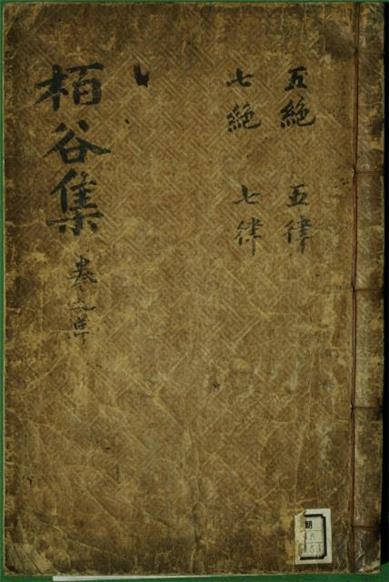 五絶 五律
七絶 七律
栢谷集
卷之單
朝